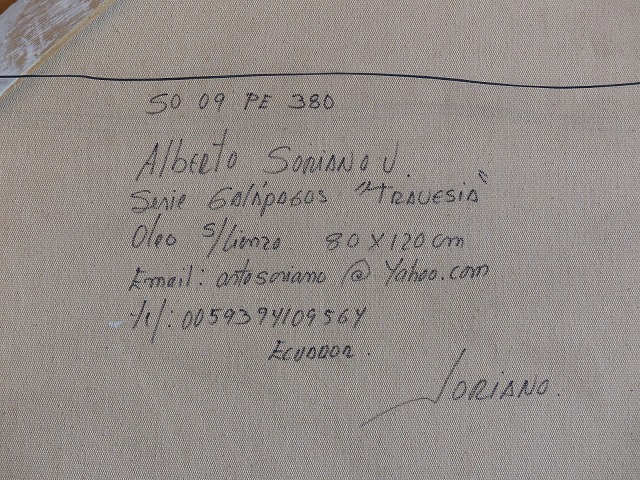 SO 09 PE 380
Alberto Soriano V.
Serie Galápagos "Travesia"
Oleo s/Lienzo 80 x 120 cm
Email: artesoriano @ Yahoo.com
tel: 0059394109564
Ecuador.
Soriano.